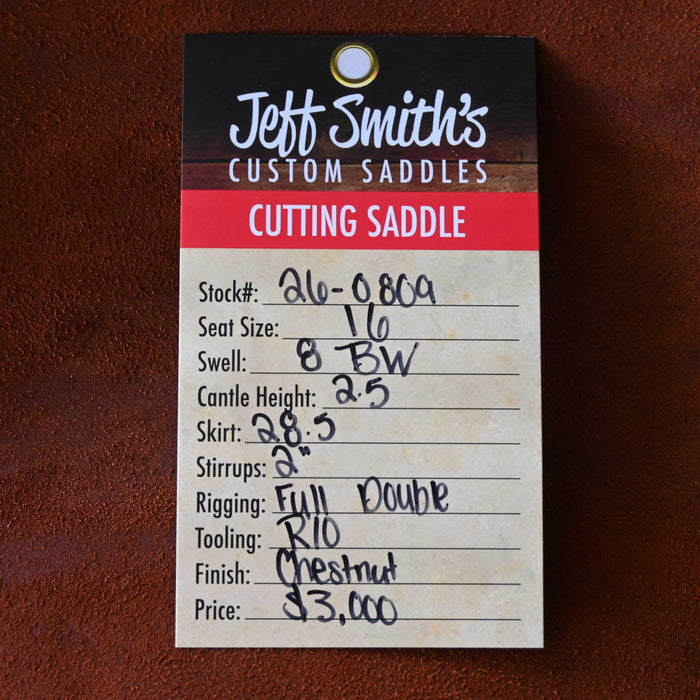 Jeff Smith's
CUSTOM SADDLES
CUTTING SADDLE
Stock#: 26-0809
Seat Size: 16
Swell: 8 BW
Cantle Height: 2.5
Skirt: 28.5
Stirrups: 2"
Rigging: Full Double
Tooling: R10
Finish: Chestnut
Price: $3,000